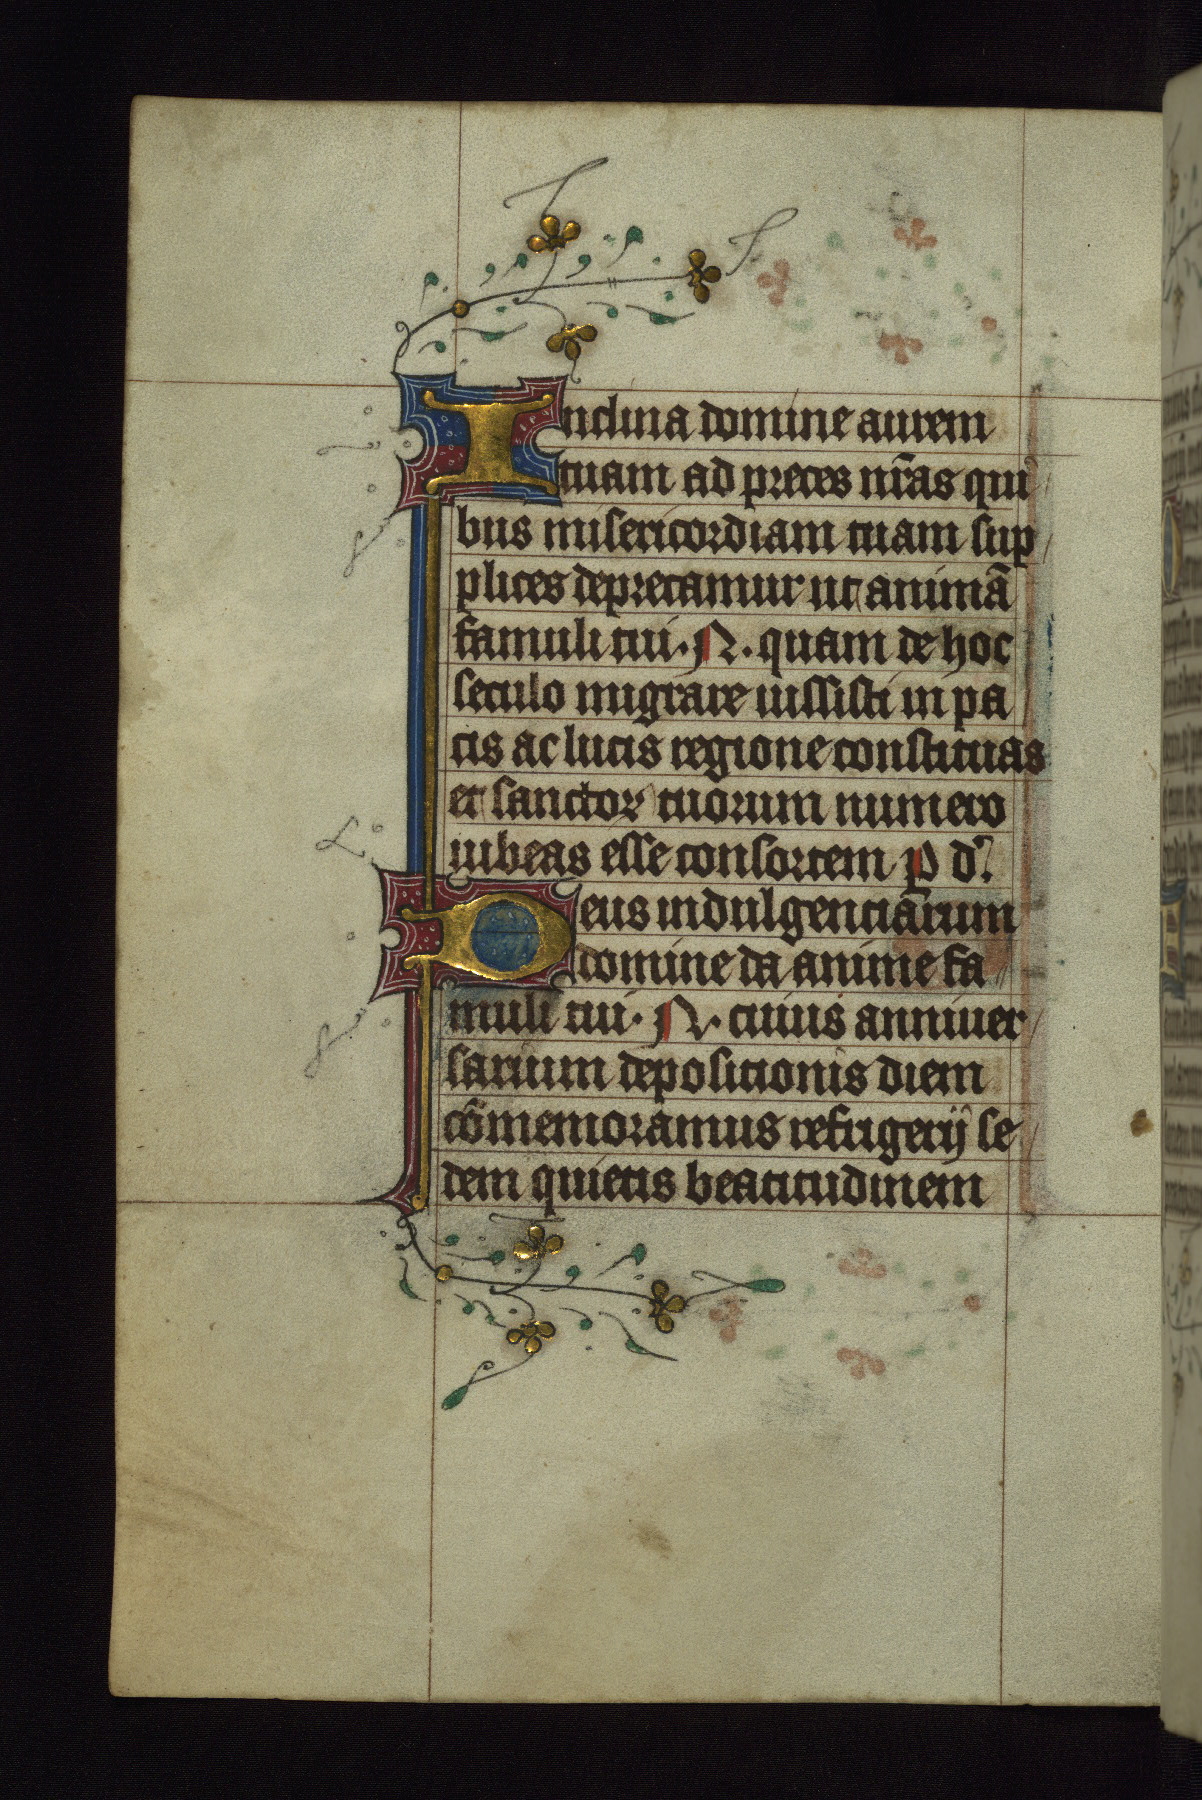 Inclina domine aurem
tuam ad preces nr̃as qui
bus misericordiam tuam sup
plices deprecamur ut animã
famuli tui · N · quam de hoc
seculo migrare iussisti in pa
cis ac lucis regione constituas
et sanctoꝝ tuorum numero
iubeas esse consortem P d̾.
Deus indulgenciarum
domine da anime fa
muli tui · N · cuius anniuer
sarium depositionis diem
cõmemoramus refrigerij se
dem quietis beatitudinem